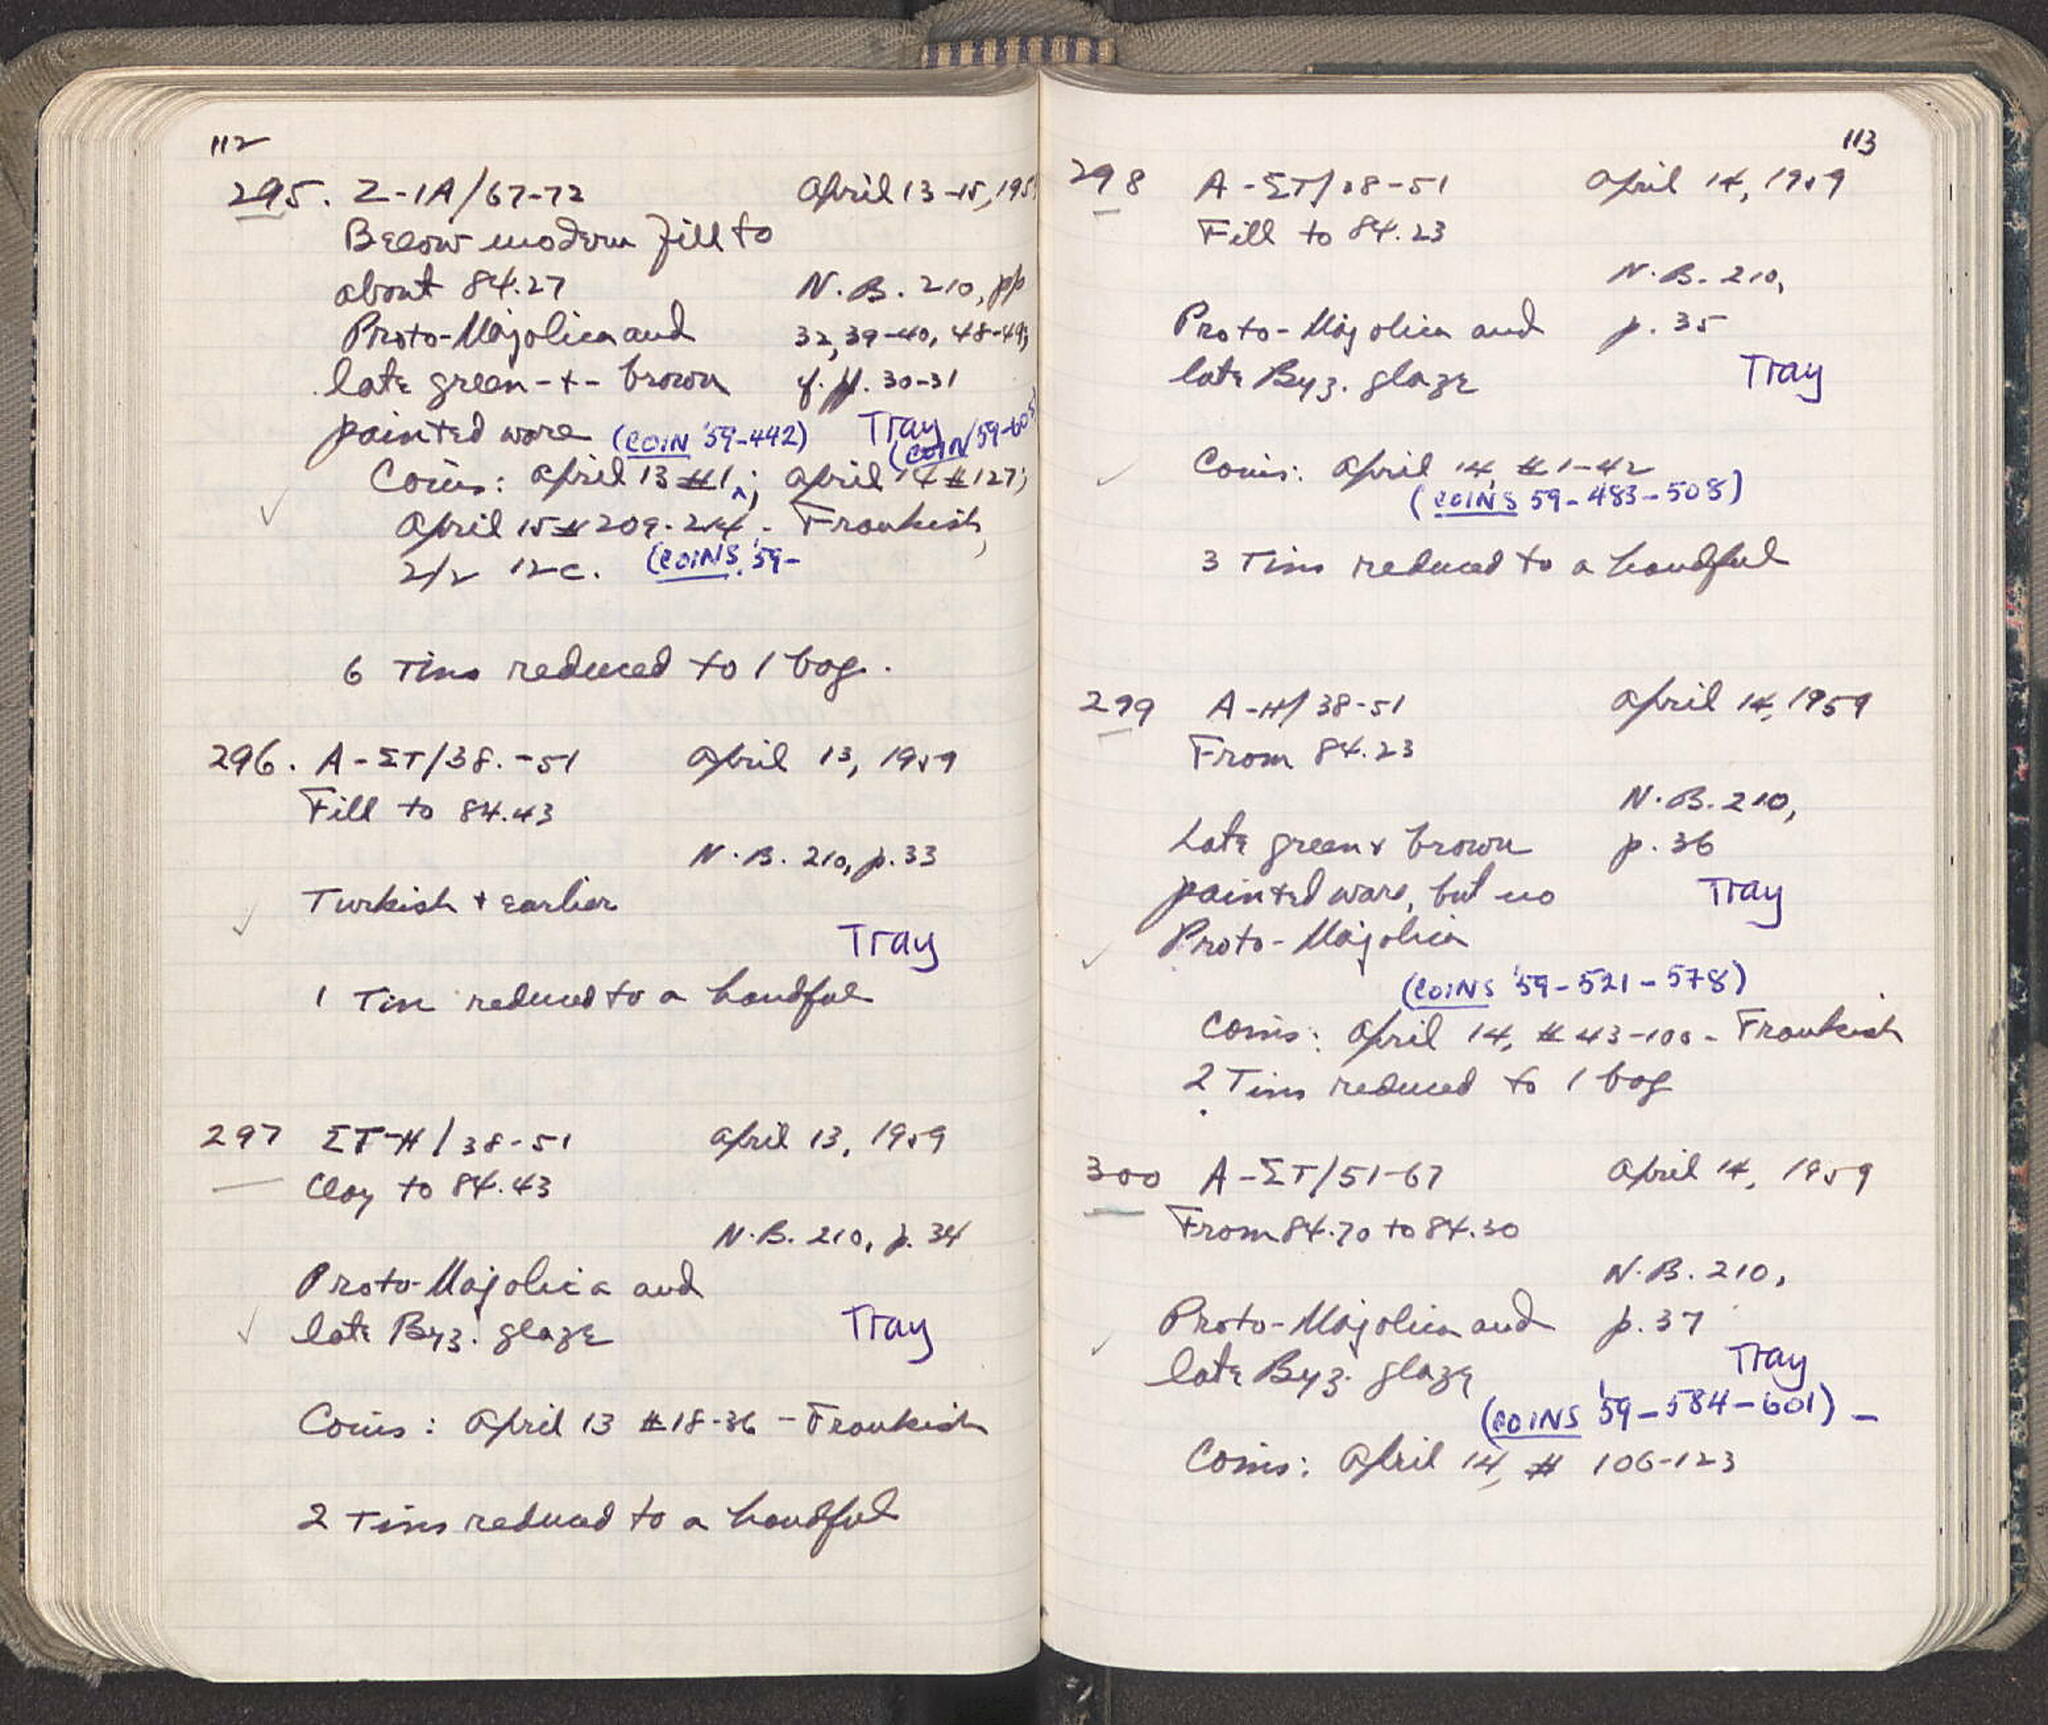 112
295. Z-1A/67-72 April 13-15, 195
Below modern fill to
about 84.27 N.B. 210, pp
Proto-Majolica and 32, 39-40, 48-49,
late green-+-brown cf. pp. 30-31
painted ware (COIN '59-442) Tray (COIN '59-605)
Coins: April 13 #1; April 14 #127;
April 15 #209-214. Frankish,
2/2 12c. (COINS '59-
6 Tins reduced to 1 bag.
296. A-ΣT/38.-51 April 13, 1959
Fill to 84.43
N.B. 210, p. 33
Turkish + earlier
Tray
1 Tin reduced to a handful
297 ΣT-H/38-51 April 13, 1959
Clay to 84.43
N.B. 210, p. 34
Proto-Majolica and
late Byz. glaze Tray
Coins: April 13 #18-36 - Frankish
2 Tins reduced to a handful
113
298 A-ΣT/38-51 April 14, 1959
Fill to 84.23
N.B. 210,
Proto-Majolica and p. 35
late Byz. glaze Tray
Coins: April 14, #1-42
(COINS 59-483-508)
3 Tins reduced to a handful
299 A-H/38-51 April 14, 1959
From 84.23
N.B. 210,
Late green + brown p. 36
painted ware, but no Tray
Proto-Majolica
(COINS '59-521-578)
Coins: April 14, #43-100 - Frankish
2 Tins reduced to 1 bag
300 A-ΣT/51-67 April 14, 1959
From 84.70 to 84.30
N.B. 210,
Proto-Majolica and p. 37
late Byz. glaze Tray
(COINS '59-584-601) -
Coins: April 14, # 106-123